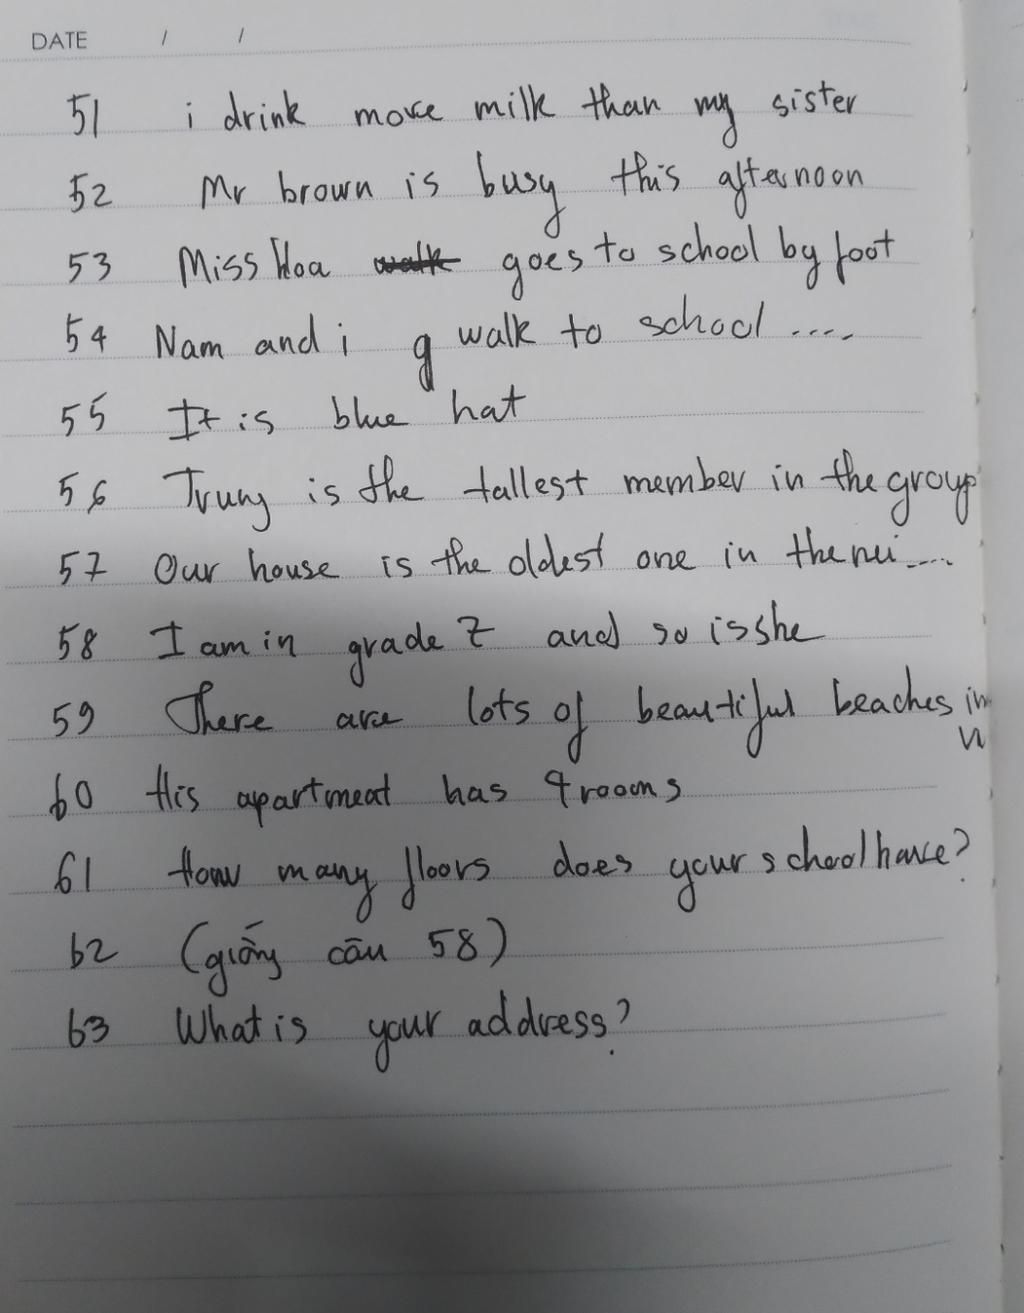 DATE / /
51 i drink more milk than my sister
52 Mr brown is busy this afternoon
53 Miss Hoa goes to school by foot
54 Nam and i g walk to school ....
55 It is blue hat
56 Trung is the tallest member in the group
57 Our house is the oldest one in the nei....
58 I am in grade 7 and so is she
59 There are lots of beautiful beaches in
60 His apartment has 4 rooms
61 How many floors does your school have?
62 (giống câu 58)
63 What is your address?